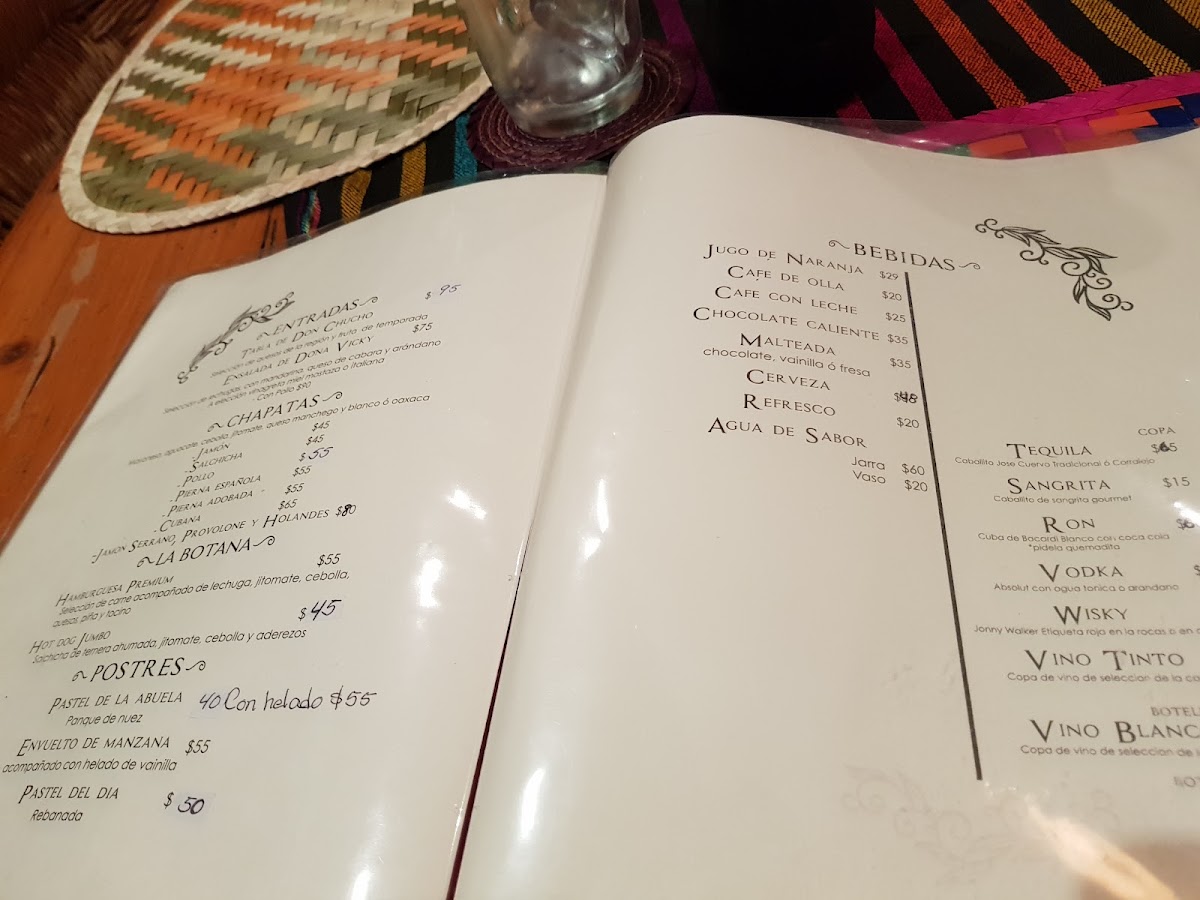 ENTRADAS
TABLA DE DON CHUCHO $ 95
Selección de quesos de la región y fruta de temporada
ENSALADA DE DONA VICKY $75
Selección de lechugas, con mandarina, queso de cabara y arándano
A elección vinagreta miel mostaza o italiana
- Con Pollo $90
CHAPATAS
Mayonesa, aguacate, cebolla, jitomate, queso manchego y blanco ó oaxaca
-JAMÓN $45
-SALCHICHA $45
-POLLO $ 55
-PIERNA ESPAÑOLA $55
-PIERNA ADOBADA $55
-CUBANA $65
-JAMON SERRANO, PROVOLONE Y HOLANDES $80
LA BOTANA
HAMBURGUESA PREMIUM $55
Selección de carne acompañado de lechuga, jitomate, cebolla,
quesos, piña y tocino
HOT DOG JUMBO $45
Salchicha de ternera ahumada, jitomate, cebolla y aderezos
POSTRES
PASTEL DE LA ABUELA 40 Con helado $55
Panque de nuez
ENVUELTO DE MANZANA $55
acompañado con helado de vainilla
PASTEL DEL DIA $ 50
Rebanada
BEBIDAS
JUGO DE NARANJA $29
CAFE DE OLLA $20
CAFE CON LECHE $25
CHOCOLATE CALIENTE $35
MALTEADA $35
chocolate, vainilla ó fresa
CERVEZA
REFRESCO $20
AGUA DE SABOR
Jarra $60
Vaso $20
COPA
TEQUILA
Caballito Jose Cuervo Tradicional ó Corralejo
SANGRITA $15
Caballito de sangrita gourmet
RON
Cuba de Bacardi Blanco con coca cola
*pidela quemadita
VODKA
Absolut con agua tonica o arandano
WISKY
Jonny Walker Etiqueta roja en la rocas o en
VINO TINTO
Copa de vino de seleccion de la
VINO
Copa de vino de seleccion de